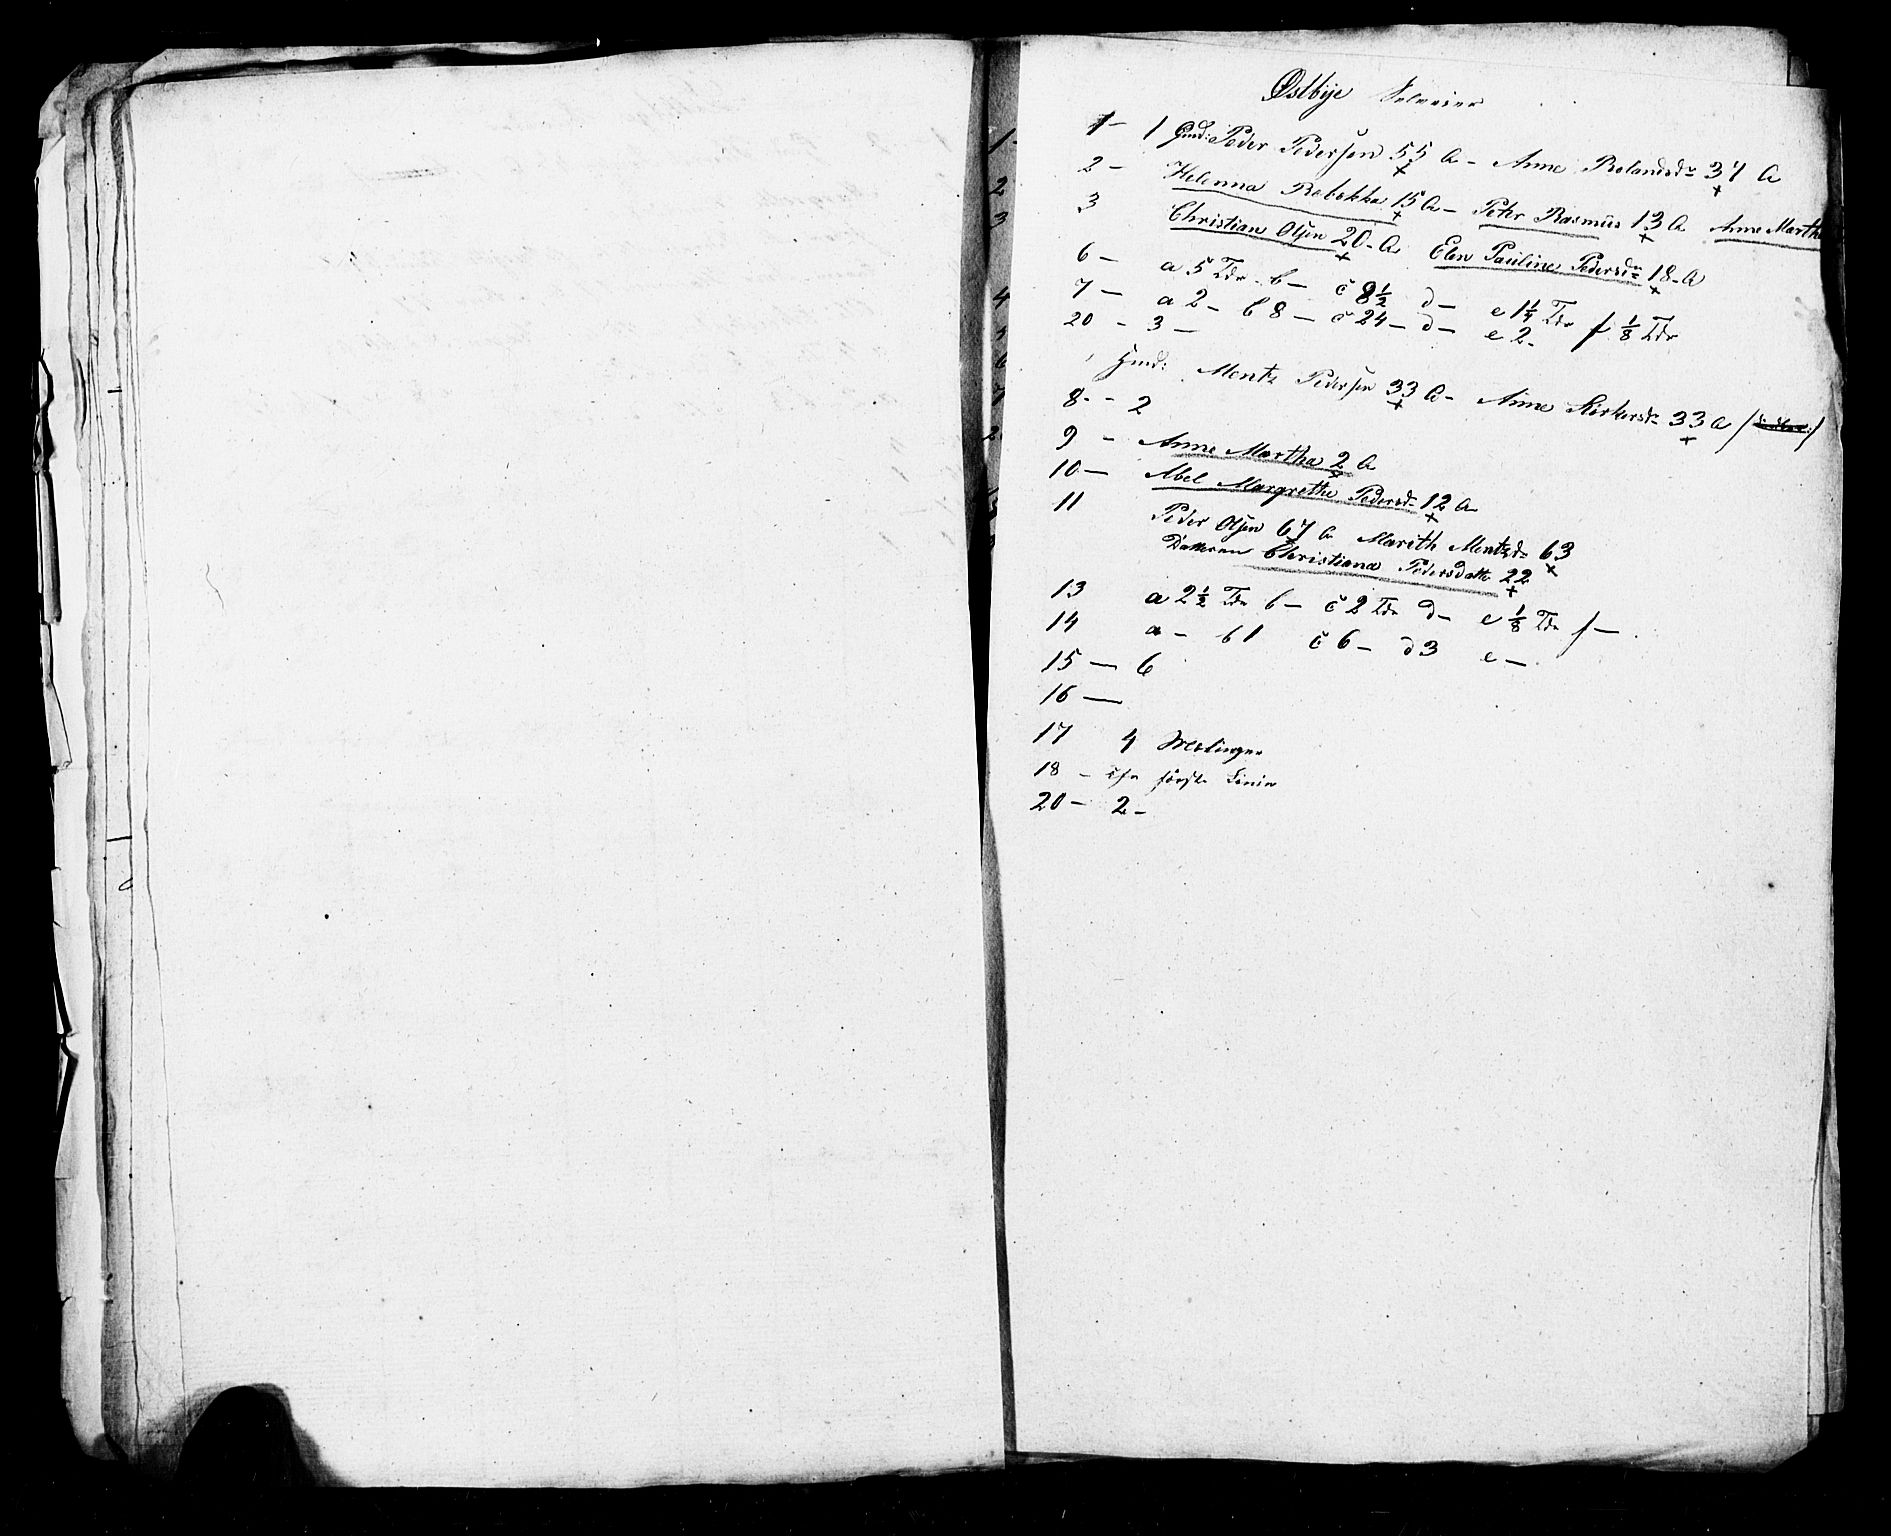 Østbye Selveier
1 - 1 Gmd: Peder Pedersen 55 A - Anne Rolandsdr 37 A
2 - Helenna Rebekka 15 A - Peter Rasmus 13 A Anne Martha
3 Christian Olsen 20 - A Elen Pauline Pedersdr 18 - A
6 - a 5 Tdr - b - c 8 1/2 d - e 1 1/4 Tdr f 1/8 Tdr
7 - a 2 - b 8 - c 24 - d - e 2 -
20 - 3 -
Hmd: Mentz Pedersen 33 A - Anne 33 A
8 - - 2
9 - Anne Martha 2 A
10 - Abel Margrethe Pedersd 12 A
11 Peder Olsen 67 A Marith Mentzdr 63
Datteren Christiana Pedersdatter 22
13 a 2 1/2 Tdr b - c 2 Tdr d - e 1/8 Tdr f -
14 a - b 1 c 6 - d 3 e -
15 - 6
16 -
17 4
18 - første Linie
20 - 2 -
1 -
2
3
4
6